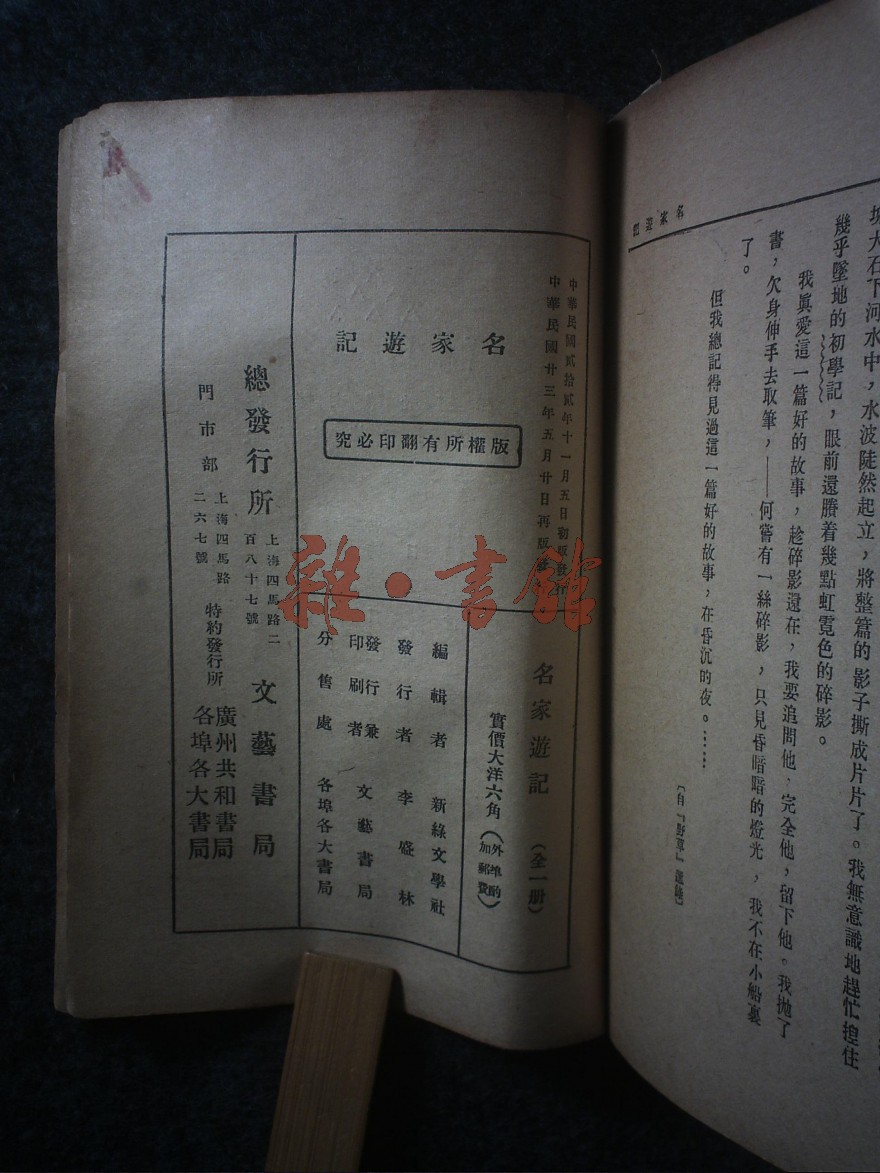 名家遊記
塊大石下河水中，水波陡然起立，將整篇的影子撕成片片了。我無意識地趕忙揑住
幾乎墜地的初學記，眼前還賸着幾點虹霓色的碎影。
我眞愛這一篇好的故事，趁碎影還在，我要追問他，完全他，留下他。我抛了
書，欠身伸手去取筆，——何嘗有一絲碎影，只見昏暗的燈光，我不在小船裏
了。
但我總記得見過這一篇好的故事，在昏沉的夜。……
（自『野草』選錄）
中華民國貳拾貳年十一月五日初版
中華民國廿三年五月廿日再版
名家遊記
版權所有翻印必究
名家遊記（全一册）
實價大洋六角（外埠酌加郵費）
編輯者 新綠文學社
發行者 李盛林
發行兼印刷者 文藝書局
分售處 各埠各大書局
總發行所 上海四馬路二百八十七號 文藝書局
門市部 上海四馬路二六七號
特約發行所 廣州共和書局
各埠各大書局
雜·書館